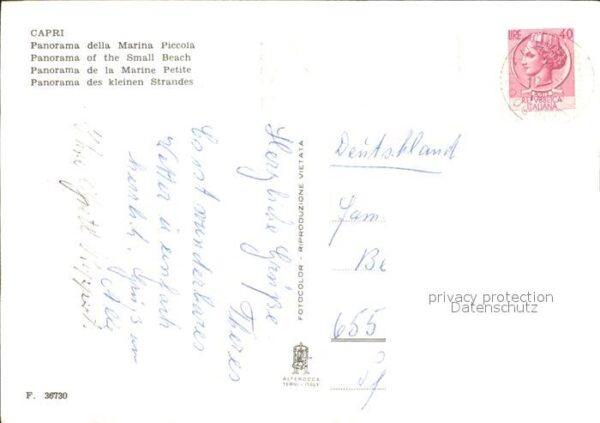 CAPRI
Panorama della Marina Piccola
Panorama of the Small Beach
Panorama de la Marine Petite
Panorama des kleinen Strandes
LIRE 40
REPVBBLICA
ITALIANA
Herzliche Grüße
Theres
Es ist wunderbares
Wetter u. einfach
herrlich. Gruß
FOTOCOLOR - RIPRODUZIONE VIETATA
ALTEROCCA
TERNI - ITALY
Deutschland
Fam
Be
655
privacy protection
Datenschutz
F. 36730